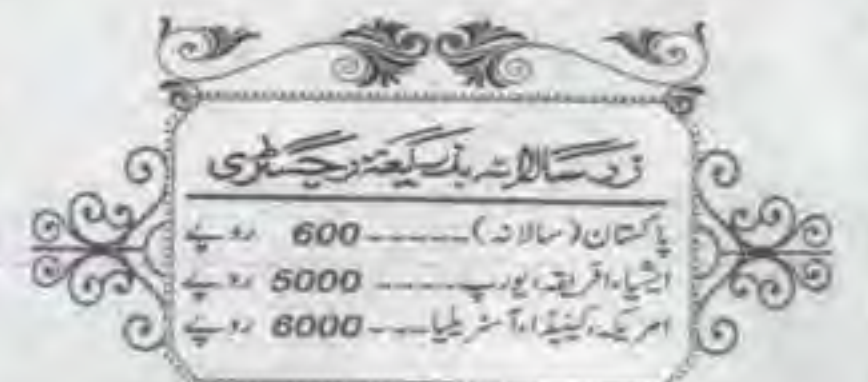 زرسالانہ بذریعہ رجسٹری
پاکستان (سالانہ)------600 روپے
ایشیا، افریقہ، یورپ-----5000 روپے
امریکہ، کینیڈا، آسٹریلیا---6000 روپے